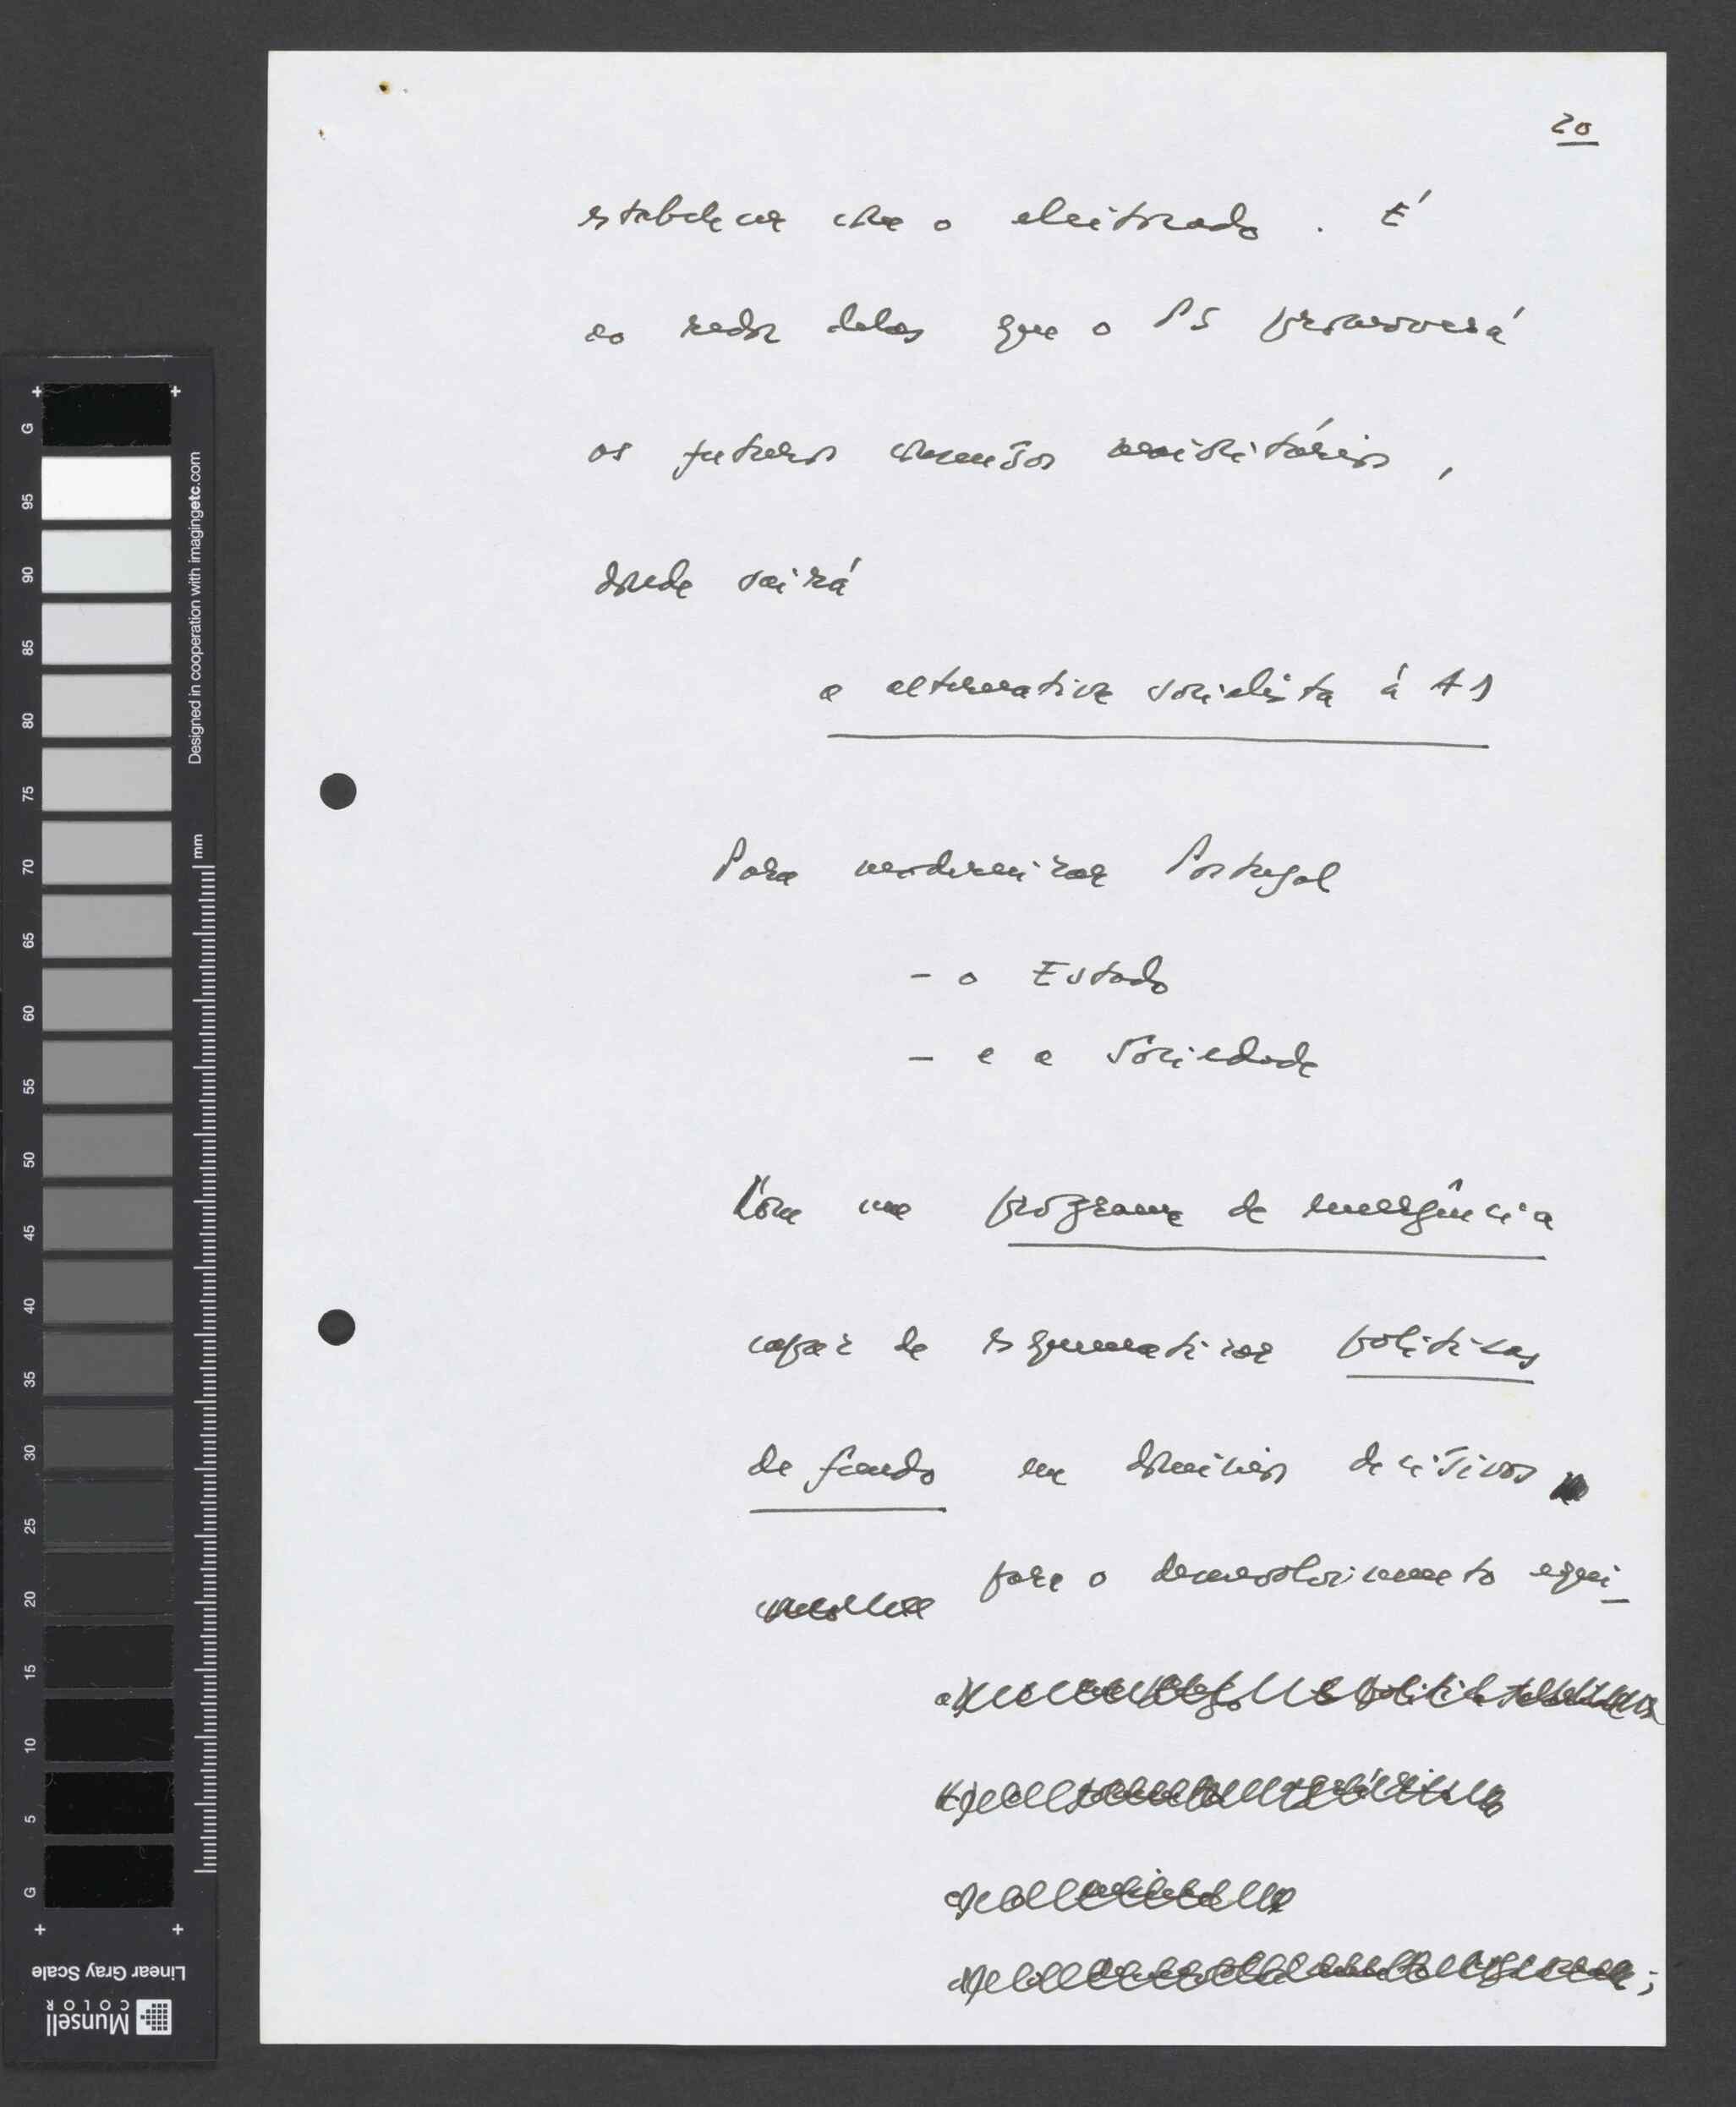 20
estabelecer com o eleitorado. É
ao redor delas que o PS promoverá
os futuros consensos maioritários,
donde sairá
a alternativa socialista à AD
Para modernizar Portugal
- o Estado
- e a Sociedade
Com um programa de emergência
capaz de esquematizar políticas
de fundo em domínios decisivos
para o desenvolvimento equi-
G 95 90 85 80 75 70 65 60 55 50 45 40 35 30 25 20 15 10 5 G
Designed in cooperation with imagingetc.com
mm
Linear Gray Scale
Munsell
COLOR